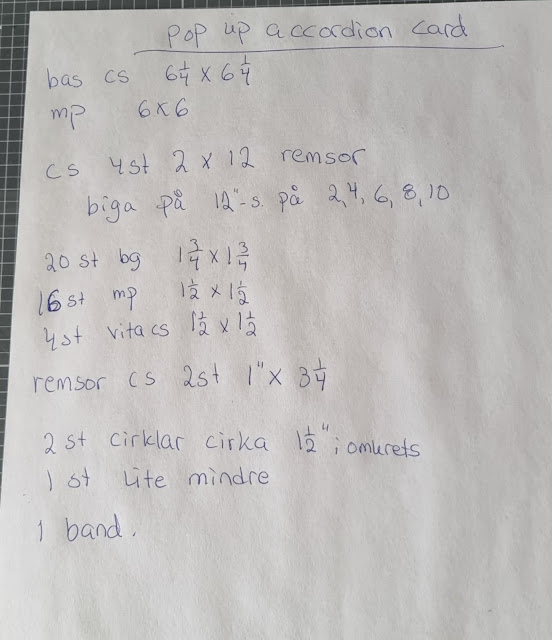 pop up accordion card
bas cs 6 1/4 x 6 1/4
mp 6x6
cs 4st 2 x 12 remsor
biga på 12"-s. på 2, 4, 6, 8, 10
20 st bg 1 3/4 x 1 3/4
16 st mp 1 1/2 x 1 1/2
4st vita cs 1 1/2 x 1 1/2
remsor cs 2st 1" x 3 1/4
2 st cirklar cirka 1 1/2" i omkrets
1 st Lite mindre
1 band.